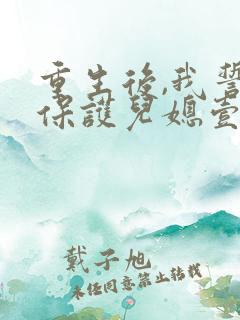 重生後,我誓
保護兒媳壹
戴子旭
未經同意禁止轉載